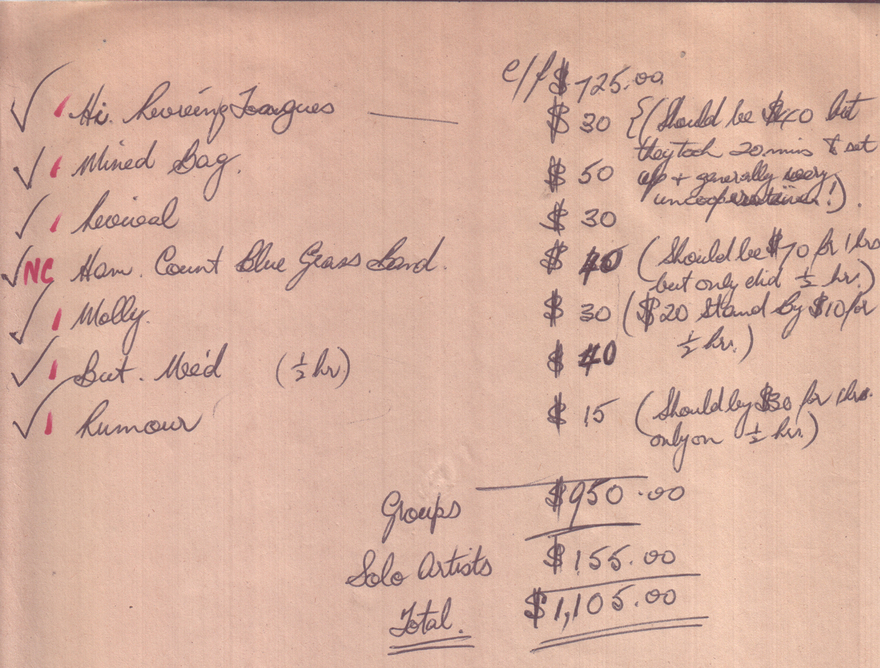 c/f $725.00
✓ 1 Hi. Revving Toungues — $ 30 {(Should be $40 but
they took 20 mins to set
✓ 1 Mixed Bag. $ 50 up + generally very
uncooperative!).
✓ 1 Revival $ 30
✓ NC Ham. Count Blue Grass Band. $ 40 (Should be $70 for 1 hrs
but only did ½ hr.)
✓ 1 Molly. $ 30 ($20 Stand by $10 for
½ hrs.)
✓ 1 But. Me'd (½ hr) $ 40
✓ 1 Rumour $ 15 (Should by $30 for 1 hrs.
only on ½ hrs.)
Groups $950.00
Solo Artists $155.00
Total. $1,105.00